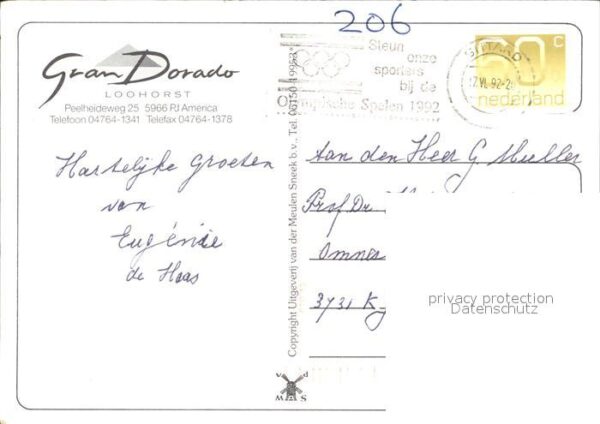 206
Gran Dorado
LOOHORST
Peelheideweg 25 5966 PJ America
Telefoon 04764-1341 Telefax 04764-1378
Hartelijke Groeten
van
Eugénie
de Haas
Copyright Uitgeverij van der Meulen Sneek b.v., Tel.
Steun
onze
sporters
bij de
Olympische Spelen 1992
SITTARD
17.VI.92
60 c
nederland
Aan den Heer G. Muller
Prof Dr
Omme
3731 K
privacy protection
Datenschutz